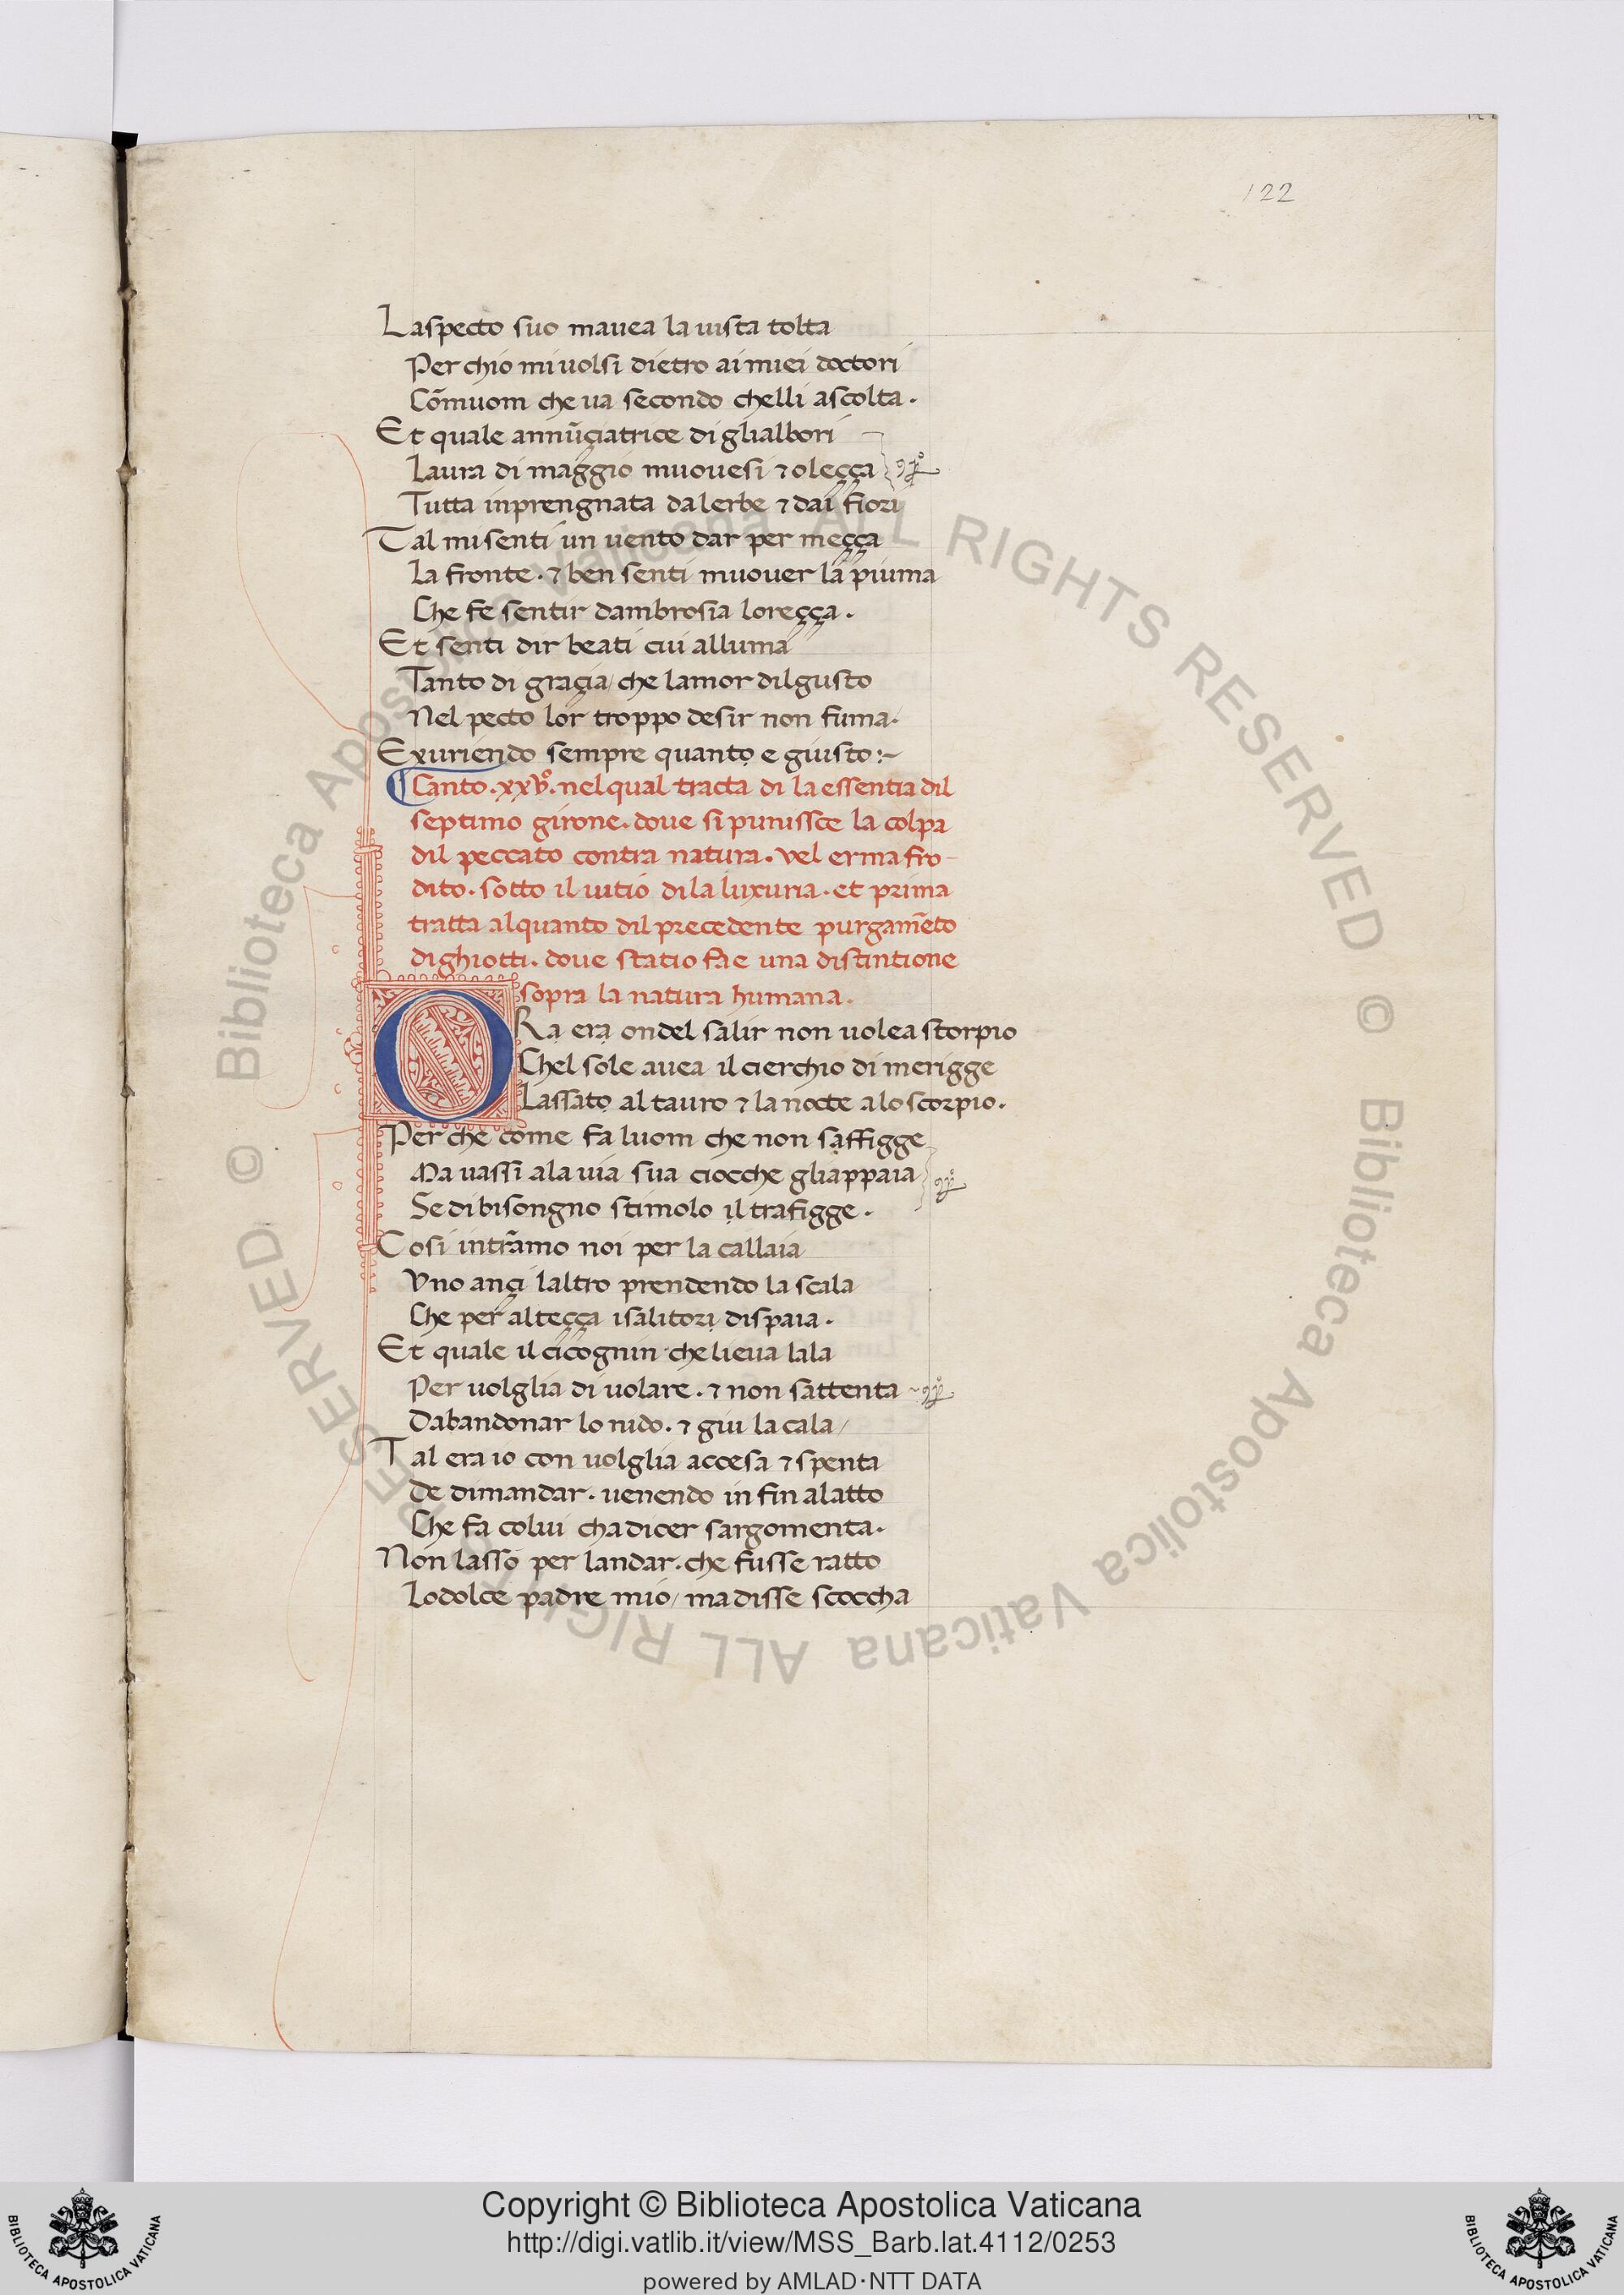 122
Laspecto suo mauea la uista tolta
Per chio mi uolsi dietro ai miei doctori
Cōmuom che ua secondo chelli ascolta.
Et quale annūçiatrice di glialbori
Laura di maggio muouesi ⁊ oleçça
Tutta inprengnata da lerbe ⁊ dai fiori
Tal mi senti un uento dar per meçça
La fronte. ⁊ ben senti muouer la piuma
Che fe sentir dambrosia loreçça.
Et senti dir beati cui alluma
Tanto di graçia/ che lamor dil gusto
Nel pecto lor troppo desir non fuma.
Exuriendo sempre quanto e giusto:~
Canto.xxvº. nel qual tracta di la essentia dil
septimo girone. doue si punissce la colpa
dil peccato contra natura. vel ermafro-
dito. sotto il uitio di la luxuria. et prima
tratta alquanto dil precedente purgam̄eto
di ghiotti. doue statio fa e una distintione
sopra la natura humana.
ORa era ondel salir non uolea storpio
Chel sole auea il cierchio di merigge
Lassato al tauro ⁊ la nocte a lo scorpio.
Per che come fa luom che non saffigge
Ma uassi a la uia sua ciocche gliappaia
Se di bisongno stimolo il trafigge.
Cosi intrāmo noi per la callaia
Vno ançi laltro prendendo la scala
Che per alteçça i salitori dispaia.
Et quale il cicognin che lieua lala
Per uolglia di uolare. ⁊ non sattenta
Dabandonar lo nido. ⁊ giu la cala/
Tal era io con uolglia accesa ⁊ spenta
De dimandar. uenendo in fin alatto
Che fa colui cha dicer sargomenta.
Non lasso per landar. che fusse ratto
Lo dolce padre mio/ ma disse scoccha
© Biblioteca Apostolica Vaticana ALL RIGHTS RESERVED © Biblioteca Apostolica Vaticana ALL RIGHTS RESERVED
Copyright © Biblioteca Apostolica Vaticana
http://digi.vatlib.it/view/MSS_Barb.lat.4112/0253
powered by AMLAD·NTT DATA
BIBLIOTECA APOSTOLICA VATICANA
BIBLIOTECA APOSTOLICA VATICANA